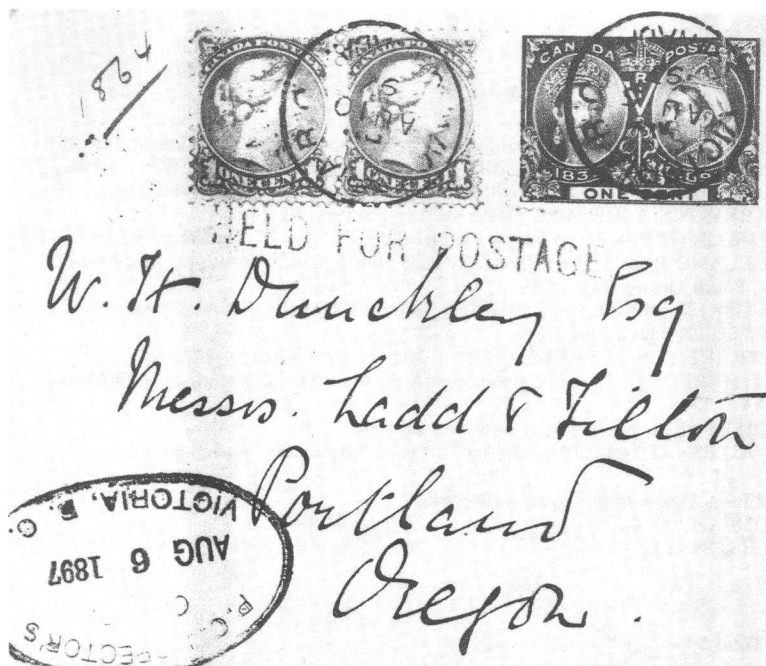 1894
CANADA POSTAGE CANADA POSTAGE
ONE CENT ONE CENT
CANADA POSTAGE
V R
183
ONE CENT
HELD FOR POSTAGE
W. H. Dunckley Esq
Messrs. Ladd & Tilton
Portland
Oregon.
VICTORIA, B. C.
AUG 6 1897
P.O.